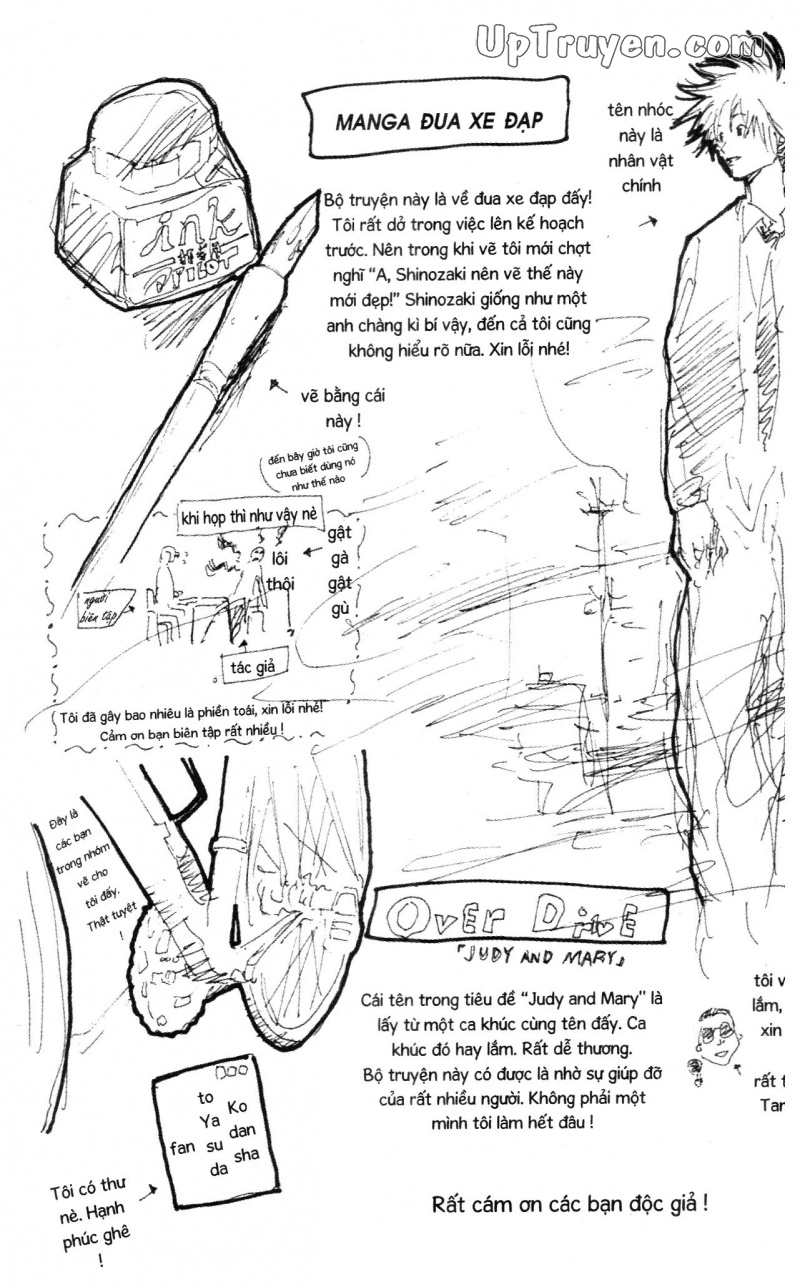 UpTruyen.com
MANGA ĐUA XE ĐẠP
tên nhóc
này là
nhân vật
chính
Bộ truyện này là về đua xe đạp đấy!
Tôi rất dở trong việc lên kế hoạch
trước. Nên trong khi vẽ tôi mới chợt
nghĩ “A, Shinozaki nên vẽ thế này
mới đẹp!” Shinozaki giống như một
anh chàng kì bí vậy, đến cả tôi cũng
không hiểu rõ nữa. Xin lỗi nhé!
ink
PILOT
vẽ bằng cái
này !
đến bây giờ tôi cũng
chưa biết dùng nó
như thế nào
khi họp thì như vậy nè
gật
gà
gật
gù
lôi
thôi
người
biên tập
tác giả
Tôi đã gây bao nhiêu là phiền toái, xin lỗi nhé!
Cảm ơn bạn biên tập rất nhiều !
Đây là
các bạn
trong nhóm
vẽ cho
tôi đấy.
Thật tuyệt
!
OVER DRIVE
「JUDY AND MARY」
Cái tên trong tiêu đề “Judy and Mary” là
lấy từ một ca khúc cùng tên đấy. Ca
khúc đó hay lắm. Rất dễ thương.
Bộ truyện này có được là nhờ sự giúp đỡ
của rất nhiều người. Không phải một
mình tôi làm hết đâu !
tôi v
lắm,
xin
rất t
Tar
to
Ya Ko
fan su dan
da sha
Tôi có thư
nè. Hạnh
phúc ghê
!
Rất cám ơn các bạn độc giả !